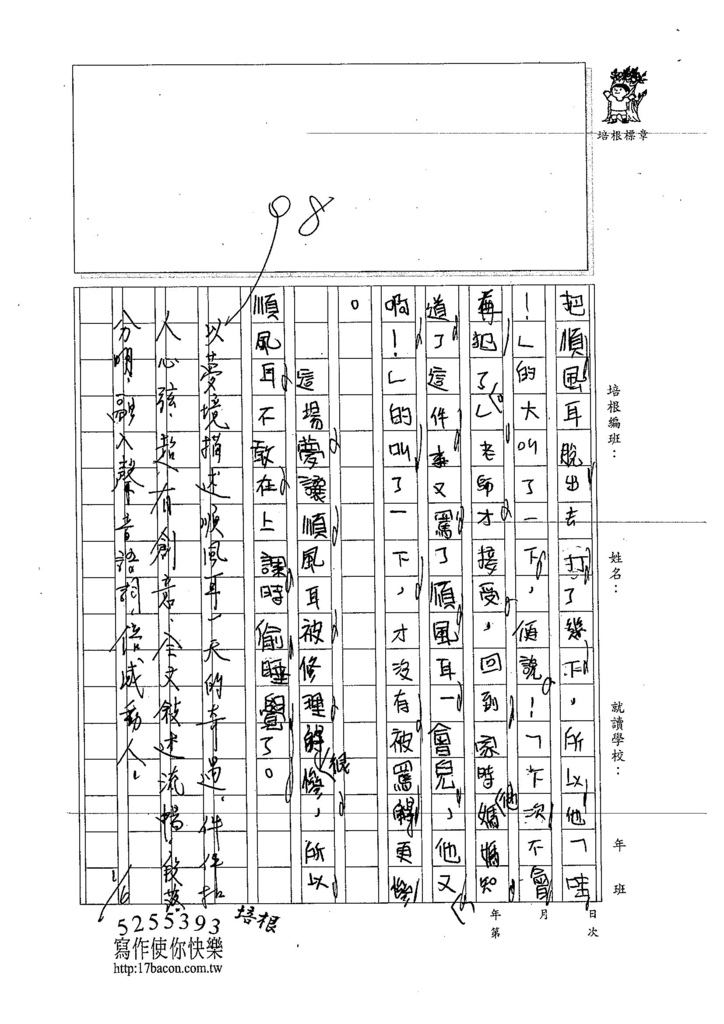 培根標章
98
培根編班：
姓名：
就讀學校：
年 班
日 月 年
次 第
把順風耳脫出去打了幾下，所以他「哇
！」的大叫了一下，便說！「下次不會
再犯了」老師才接受，回到家時他媽媽知
道了這件事又罵了順風耳一會兒，他又「
啊！」的叫了一下，才沒有被罵得更慘
。
這場夢讓順風耳被修理得很慘，所以
順風耳不敢在上課時偷睡覺了。
以夢境描述順風耳一天的奇遇，件件扣
人心弦，超有創意，全文敘述流暢，段落
分明，融入聲音語詞，倍感動人！
1/6
5255393 培根
寫作使你快樂
http:17bacon.com.tw